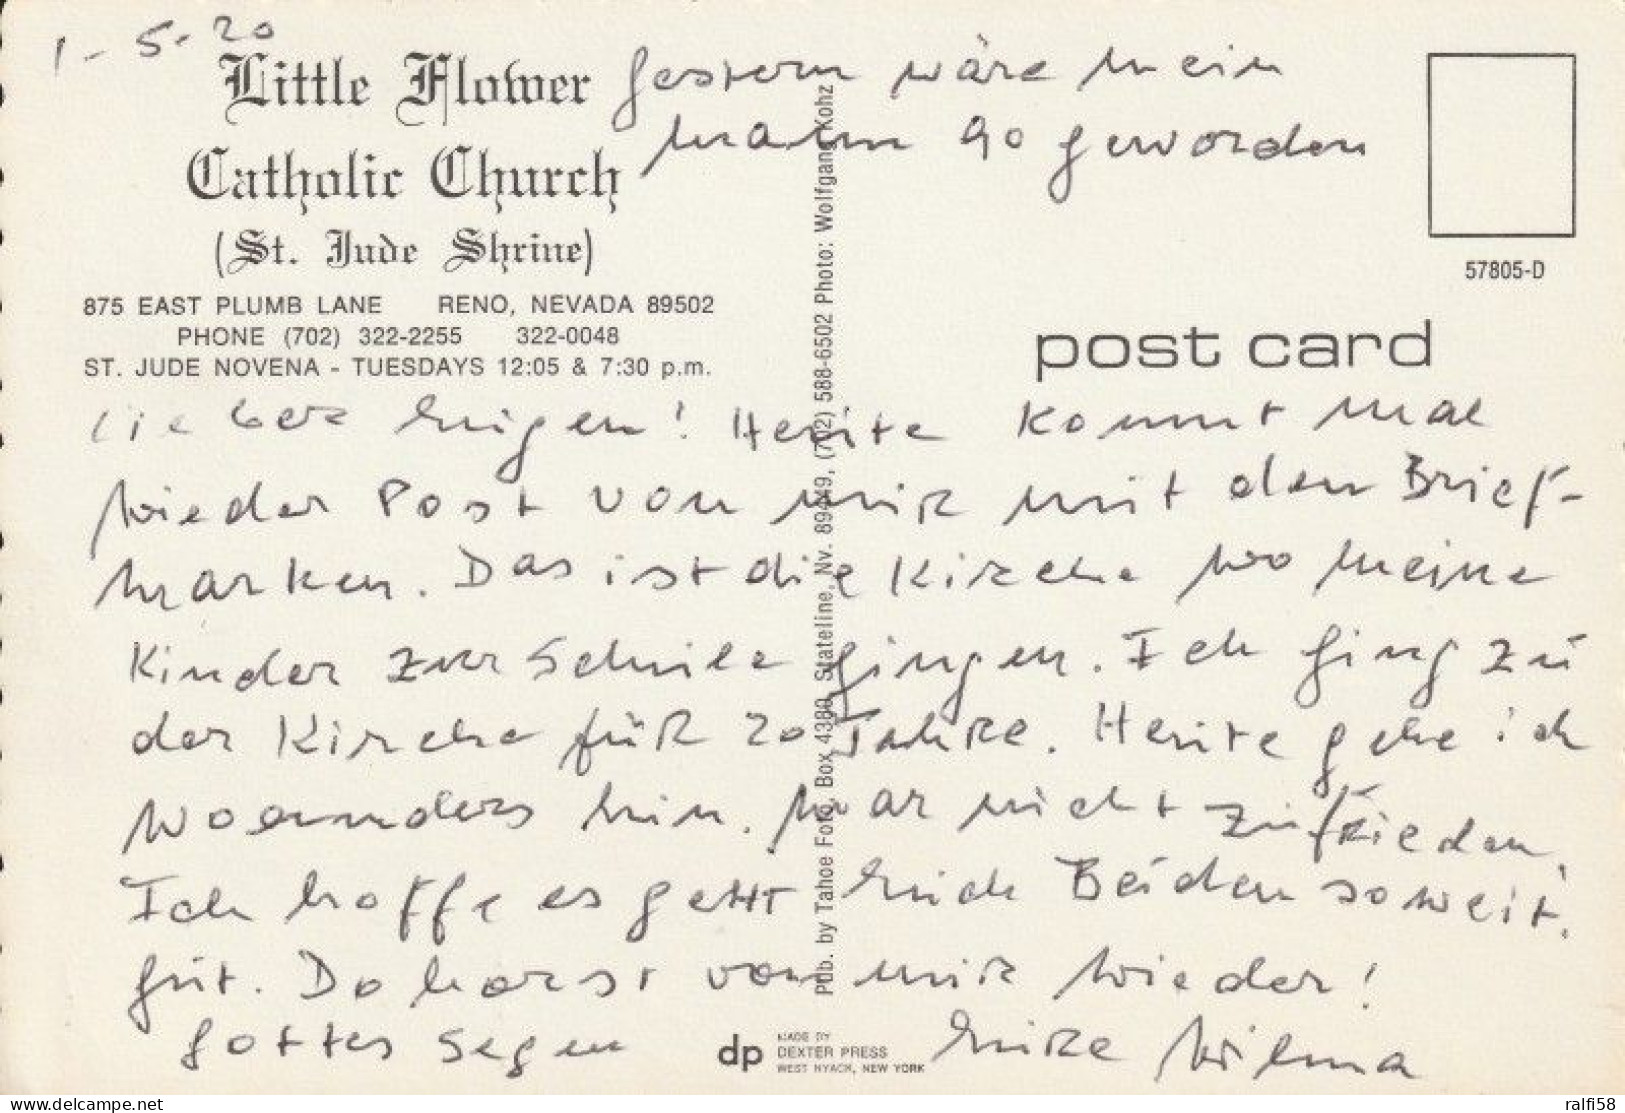 1-5-20
Little Flower
Catholic Church
(St. Jude Shrine)
875 EAST PLUMB LANE RENO, NEVADA 89502
PHONE (702) 322-2255 322-0048
ST. JUDE NOVENA - TUESDAYS 12:05 & 7:30 p.m.
Gestern wäre mein
Mann 90 geworden
57805-D
post card
Lieber Eugen! Heute kommt mal
wieder Post von mir mit den Brief-
marken. Das ist die Kirche wo meine
Kinder zur Schule gingen. Ich ging zu
der Kirche für 20 Jahre. Heute gehe ich
woanders hin. War nicht zufrieden.
Ich hoffe es geht Euch Beiden soweit.
gut. Du horst von mir wieder!
Gottes Segen Eure Wilma
Pub. by Tahoe Foto, Box 4380, Stateline, Nv. 89449, (702) 588-6502 Photo: Wolfgang Kohz
dp MADE BY
DEXTER PRESS
WEST NYACK, NEW YORK
https://www.delcampe.net
ralfi58